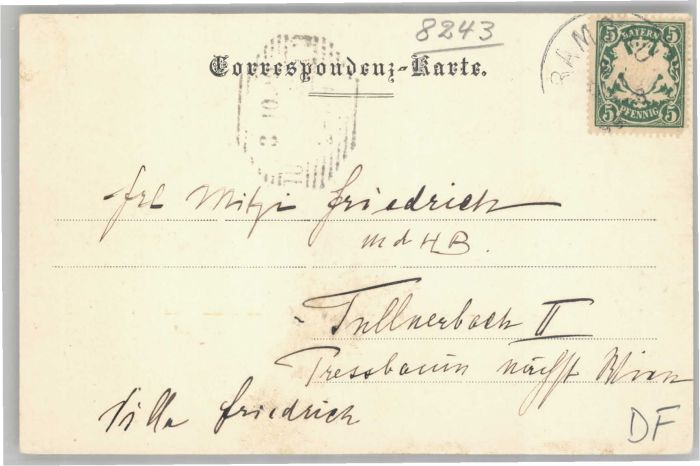 8243
Correspondenz-Karte.
BAYERN
5 5
5 PFENNIG 5
RAM
Frl Mitzi Friedrich
Tullnerbach II
Pressbaum nächst Wien
Villa Friedrich
DF